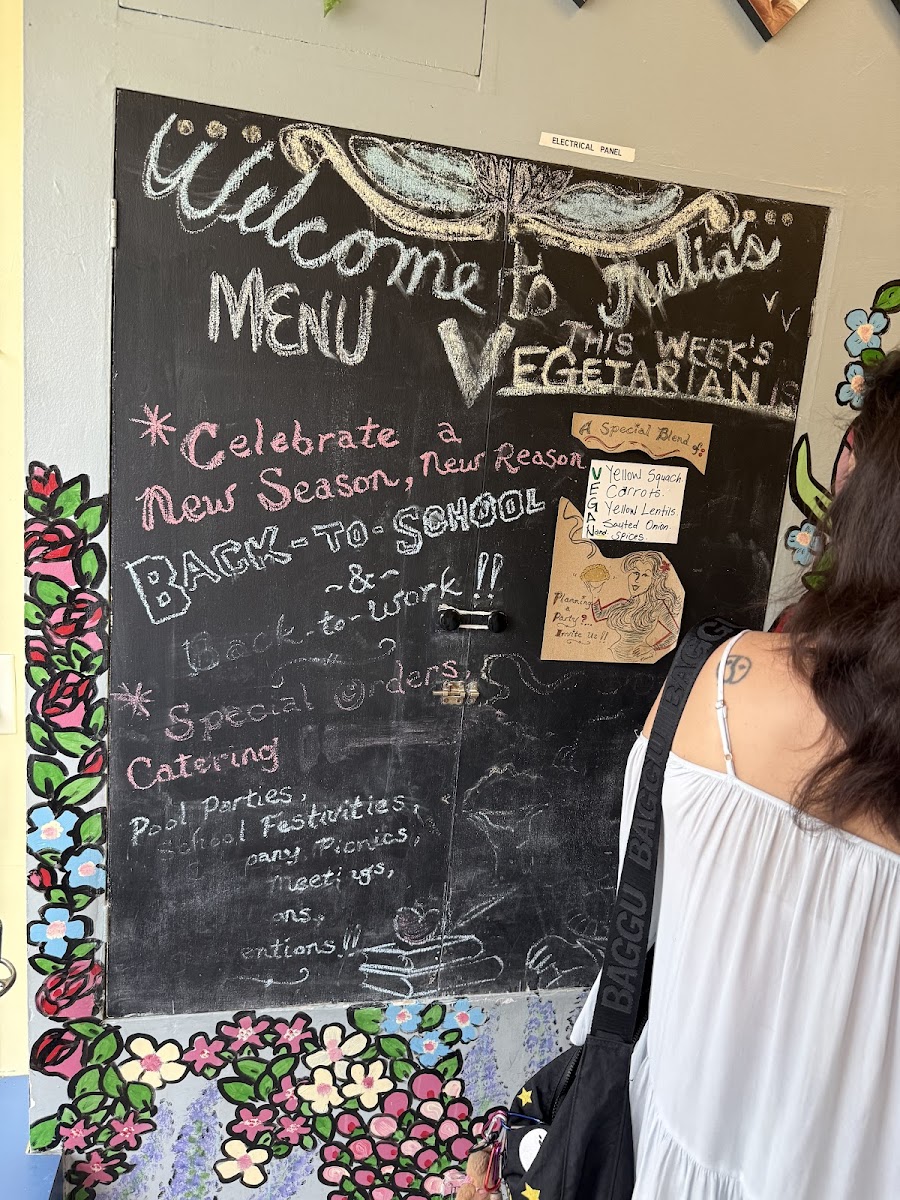 ELECTRICAL PANEL
Welcome to Julia's
MENU
THIS WEEK'S
VEGETARIAN IS
*Celebrate a
New Season, New Reason
BACK-TO-SCHOOL
~&~
Back-to-work!!
*Special Orders,
Catering
Pool Parties,
School Festivities,
pany, Picnics,
Meetings,
ons,
entions!!
A Special Blend of:
VEGAN
Yellow Squach
Carrots.
Yellow Lentils.
Sauted Onion.
and Spices
Planning
a
Party?...
Invite Us!!
BAGGU BAGGU BAGGU